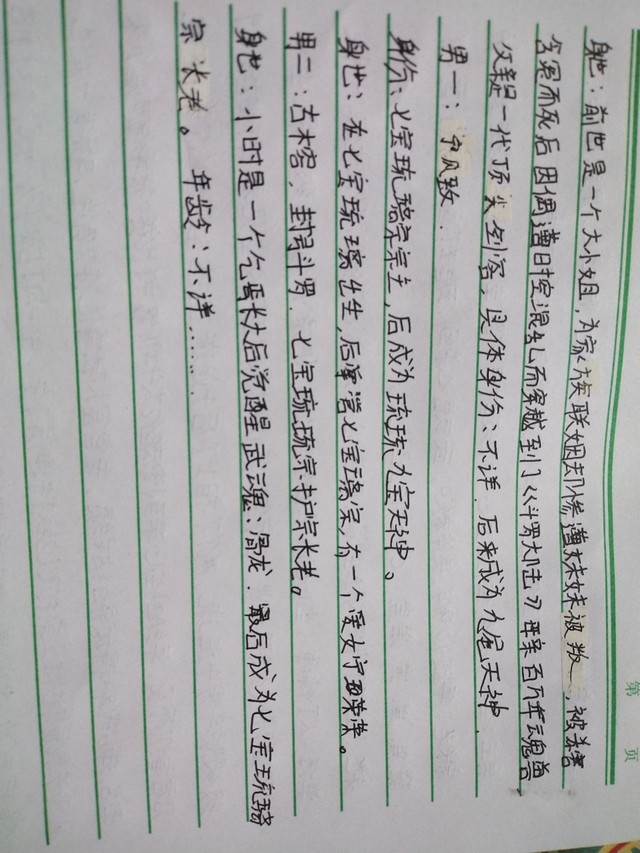 第 页
身世：前世是一个大小姐，为家族联姻却惨遭妹妹被叛，被害
含冤而死后因偶遭时空混乱而穿越到了《斗罗大陆》母亲百万年魂兽
父亲是一代顶尖剑客，具体身份：不详 后来成为九尾天神.
男一：宁风致.
身份：七宝琉璃宗宗主，后成为琉琉九宝天神。
身世：在七宝琉璃出生，后掌管七宝璃宗，有一个爱女宁荣荣。
男二：古木容，封号斗罗. 七宝琉琉宗护宗长老。
身世：小时是一个乞丐长大后觉醒武魂：骨龙. 最后成为七宝琉璃
宗长老。 年龄：不详…….